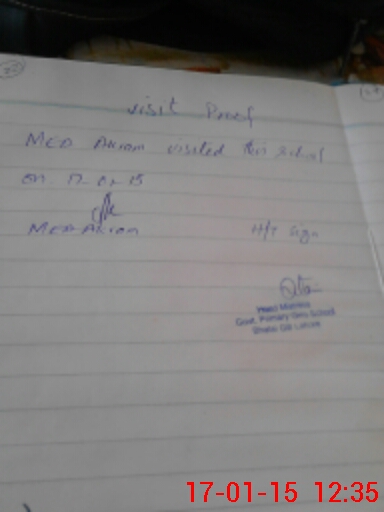 visit Proof
MEA Akram visited this school
on 17-01-15
MEA Akram
H/T Sign
Head Mistress
Govt. Primary Girls School
Lahore
17-01-15 12:35